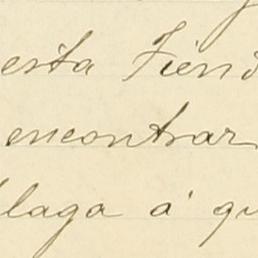 esta Tiend
encontrar
laga á qu